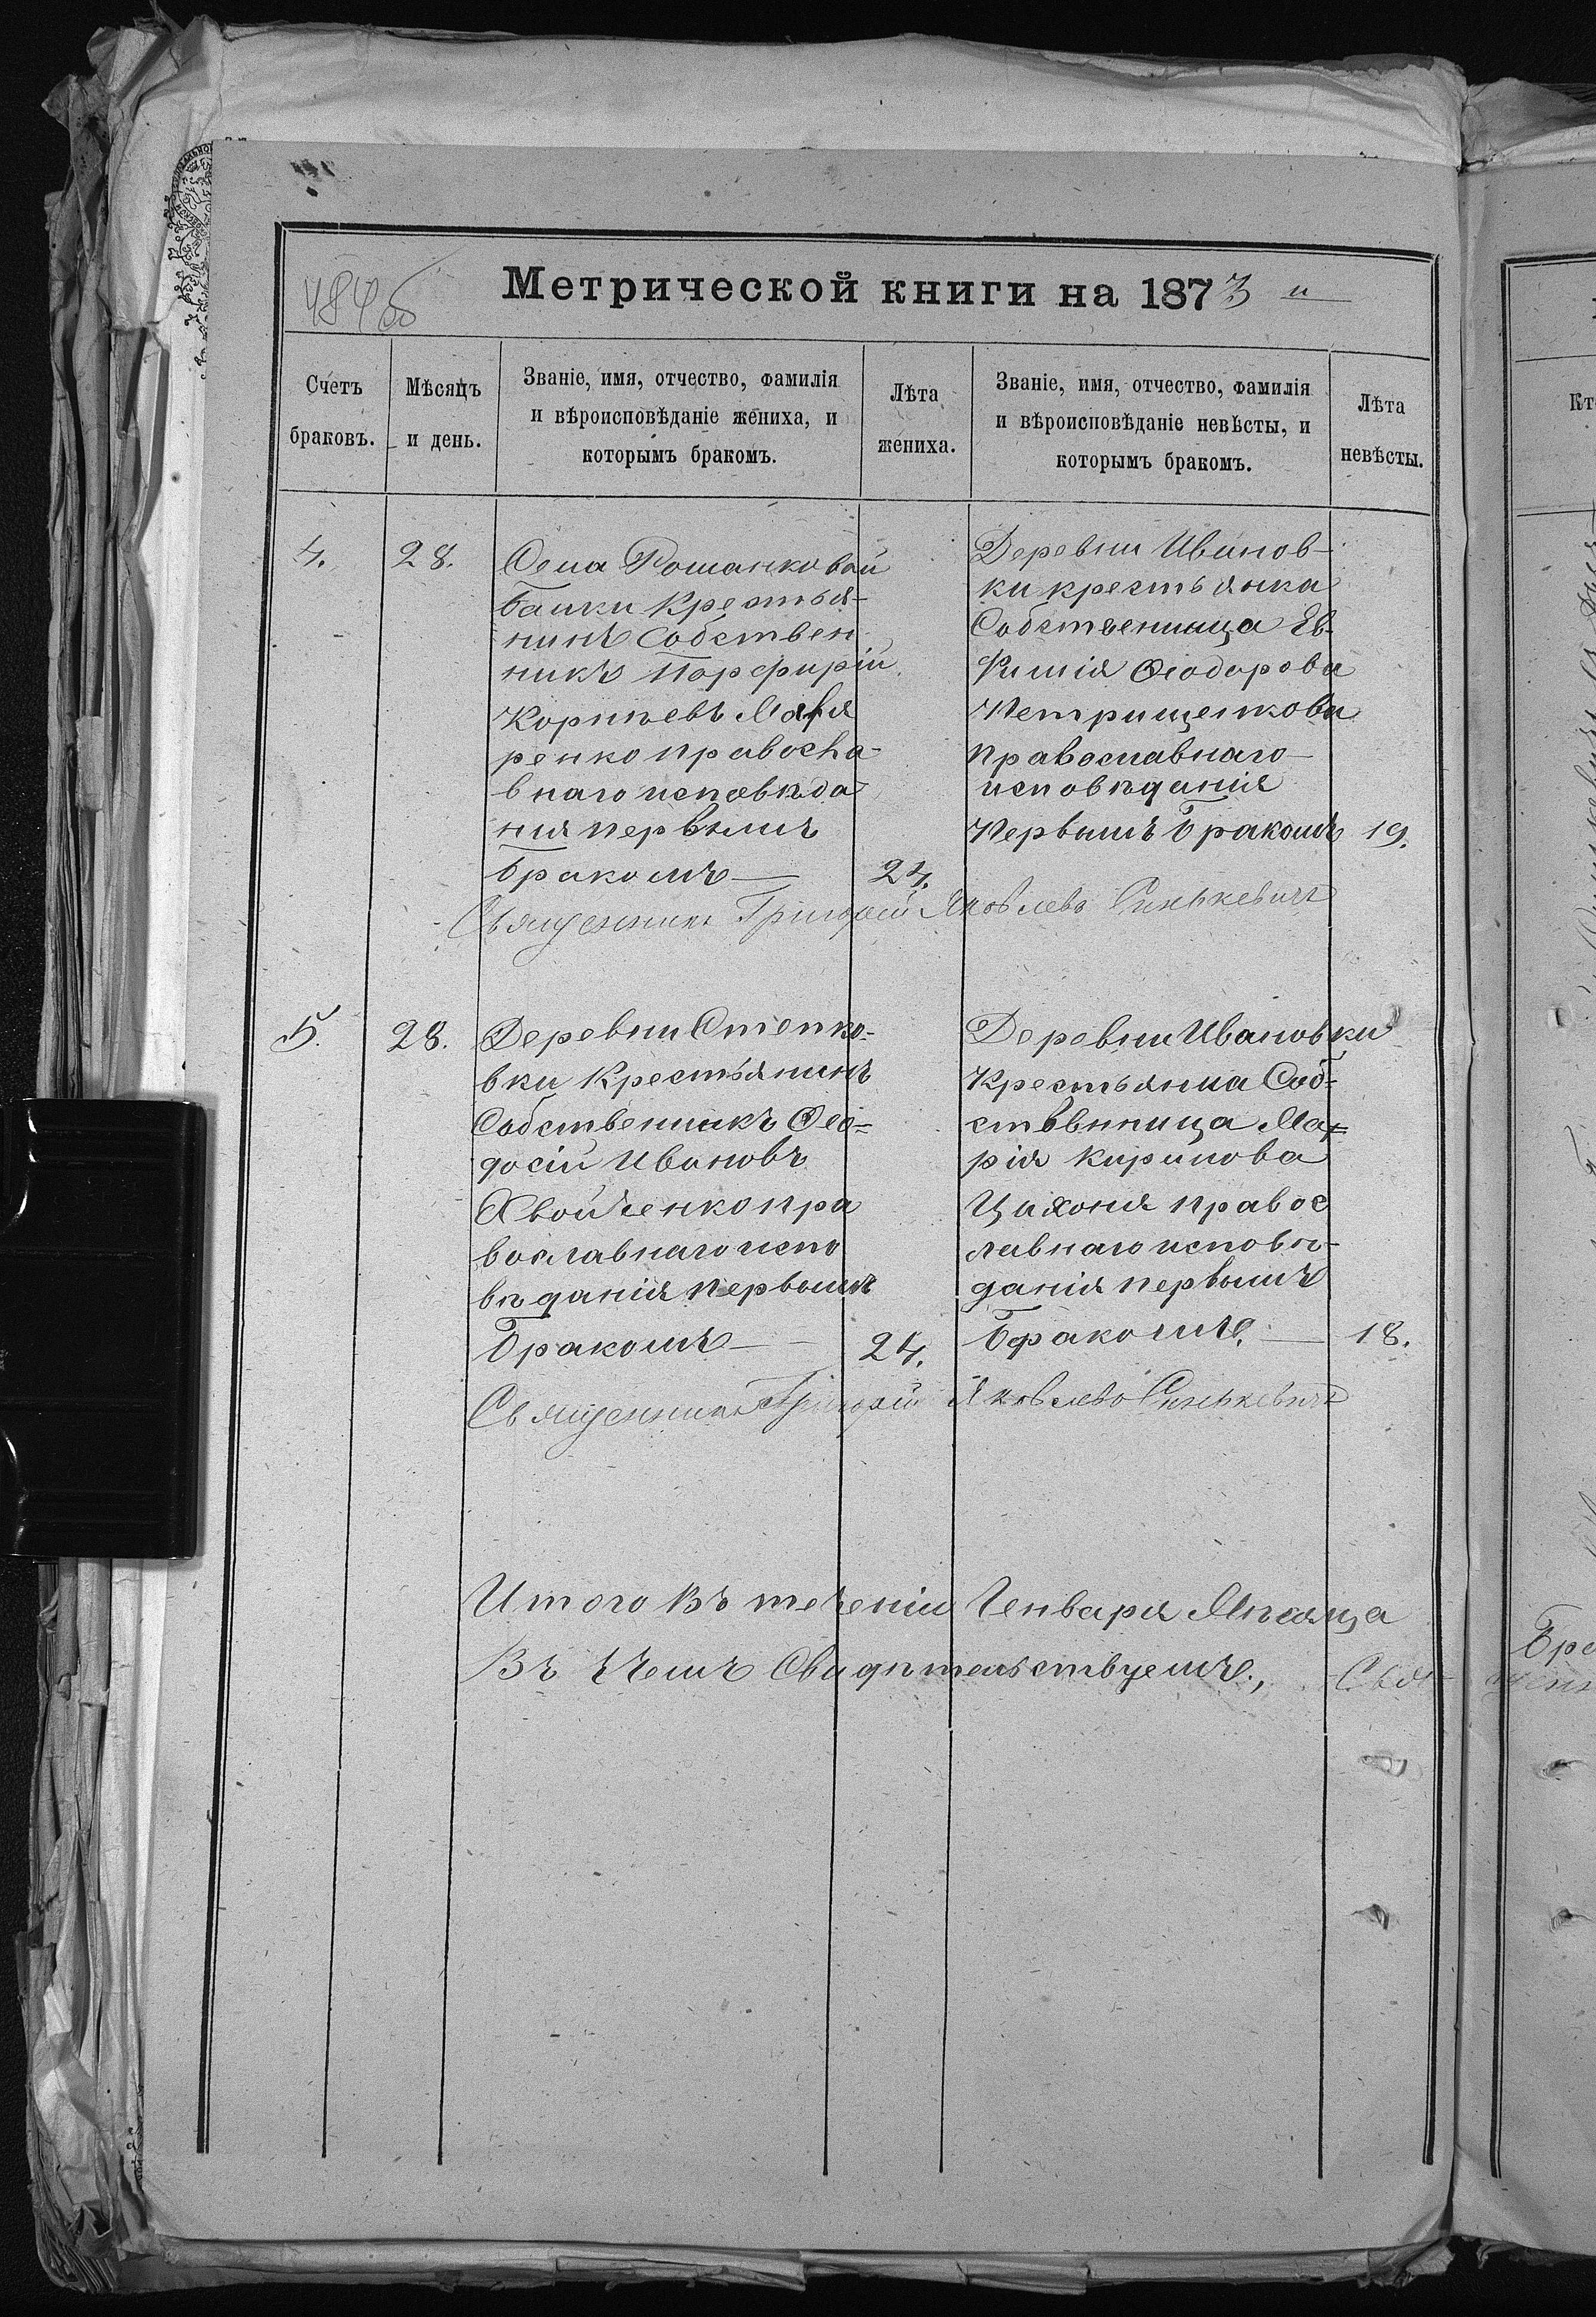 484 об
Метрической книги на 1873 и
Счетъ браковъ.
Мѣсяцъ и день.
Званіе, имя, отчество, фамилія
и вѣроисповѣданіе жениха, и
которымъ бракомъ.
Лѣта жениха.
Званіе, имя, отчество, фамилія
и вѣроисповѣданіе невѣсты, и
которымъ бракомъ.
Лѣта невѣсты.
4.
28.
Села Романковой
Балки Крестья-
нинъ Собствен
никъ Порфирій
Корнѣевъ
ренко правосла-
внаго исповѣда
нія первымъ
бракомъ
24.
Деревни Иванов-
ки крестьянка
Собственница Ев-
фимія Ѳеодорова
Петрищенкова
православнаго
исповѣданія
Первымъ Бракомъ
19.
Священникъ Григорій Яковлевъ Синькевичъ
5.
28.
Деревни Степко-
вки Крестьянинъ
Собственникъ Ѳео-
досій Ивановъ
Хвойченко пра
вославнаго испо
вѣданія первымъ
Бракомъ
24.
Деревни Ивановки
Крестьянка Соб-
ственница Ма-
рія Кирилова
Цихоня правос
лавнаго исповѣ-
данія первымъ
Бракомъ.
18.
Священникъ Григорій Яковлевъ Синькевичъ
Итого въ теченіи Генваря Мѣсяца
Въ чемъ Свидѣтельствуемъ.,
Свя
Кт
Бра
щен